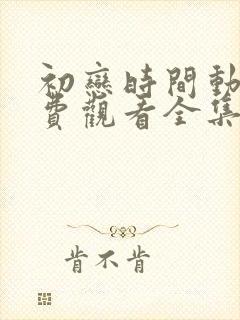 初戀時間動
費觀看全集
肯不肯